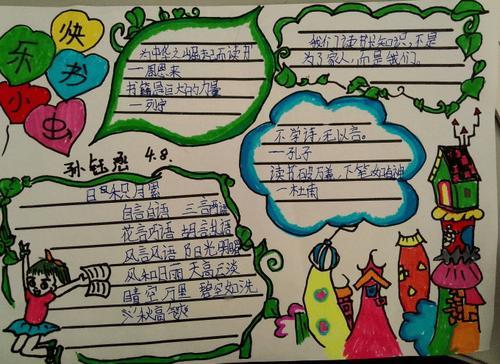 快
乐 书
小 虫
为中华之崛起而读书
—周恩来
书籍是巨大的力量
—列宁
我们读书长知识,不是
为了家人,而是我们。
不学诗,无以言。
—孔子
读书破万卷,下笔如有神
—杜甫
孙钰 4.8.
日积月累
自言自语
花言巧语 胡言乱语
风言风语 阳光明媚
风和日丽 天高云淡
晴空万里 碧空如洗
秋高气爽